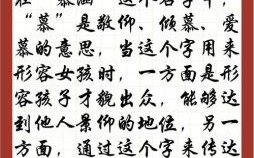 “慕”是敬仰、倾慕、爱
慕的意思，当这个字用来
形容女孩时，一方面是形
容孩子才貌出众，能够达
到他人景仰的地位，另一
方面，通过这个字来传达